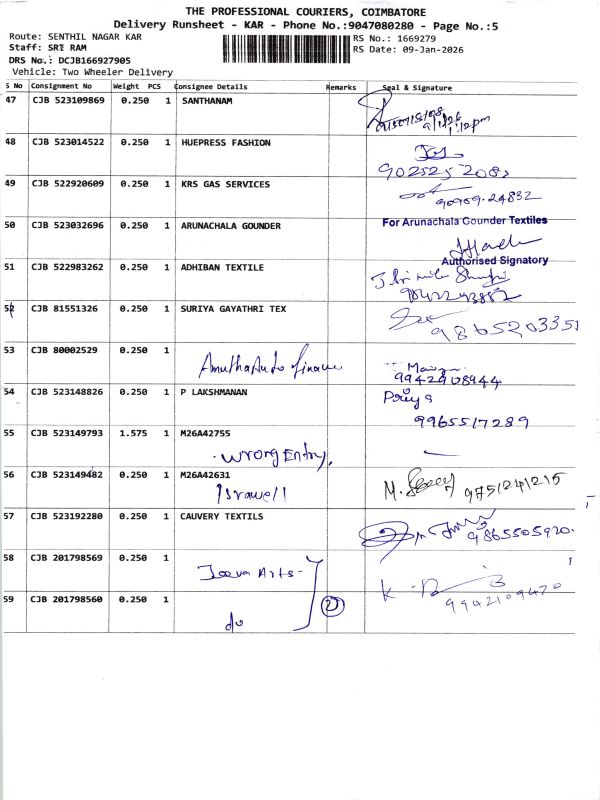 THE PROFESSIONAL COURIERS, COIMBATORE
Delivery Runsheet - KAR - Phone No.:9047080280 - Page No.:5
Route: SENTHIL NAGAR KAR
RS No.: 1669279
Staff: SRI RAM
RS Date: 09-Jan-2026
DRS No.: DCJB166927905
Vehicle: Two Wheeler Delivery
S No Consignment No Weight PCS Consignee Details Remarks Seal & Signature
47 CJB 523109869 0.250 1 SANTHANAM
9/1/26
1:12pm
48 CJB 523014522 0.250 1 HUEPRESS FASHION
49 CJB 522920609 0.250 1 KRS GAS SERVICES
90909.24832
50 CJB 523032696 0.250 1 ARUNACHALA GOUNDER For Arunachala Gounder Textiles
Authorised Signatory
51 CJB 522983262 0.250 1 ADHIBAN TEXTILE
52 CJB 81551326 0.250 1 SURIYA GAYATHRI TEX
9865203351
53 CJB 80002529 0.250 1
Amutha Auto finance
9942908944
54 CJB 523148826 0.250 1 P LAKSHMANAN Priya
9965517289
55 CJB 523149793 1.575 1 M26A42755
wrong Entry,
56 CJB 523149482 0.250 1 M26A42631
Israwell M. 9751241215
57 CJB 523192280 0.250 1 CAUVERY TEXTILS
9865505920.
58 CJB 201798569 0.250 1
Jeeva Arts-
K
9942109470
59 CJB 201798560 0.250 1 2
do